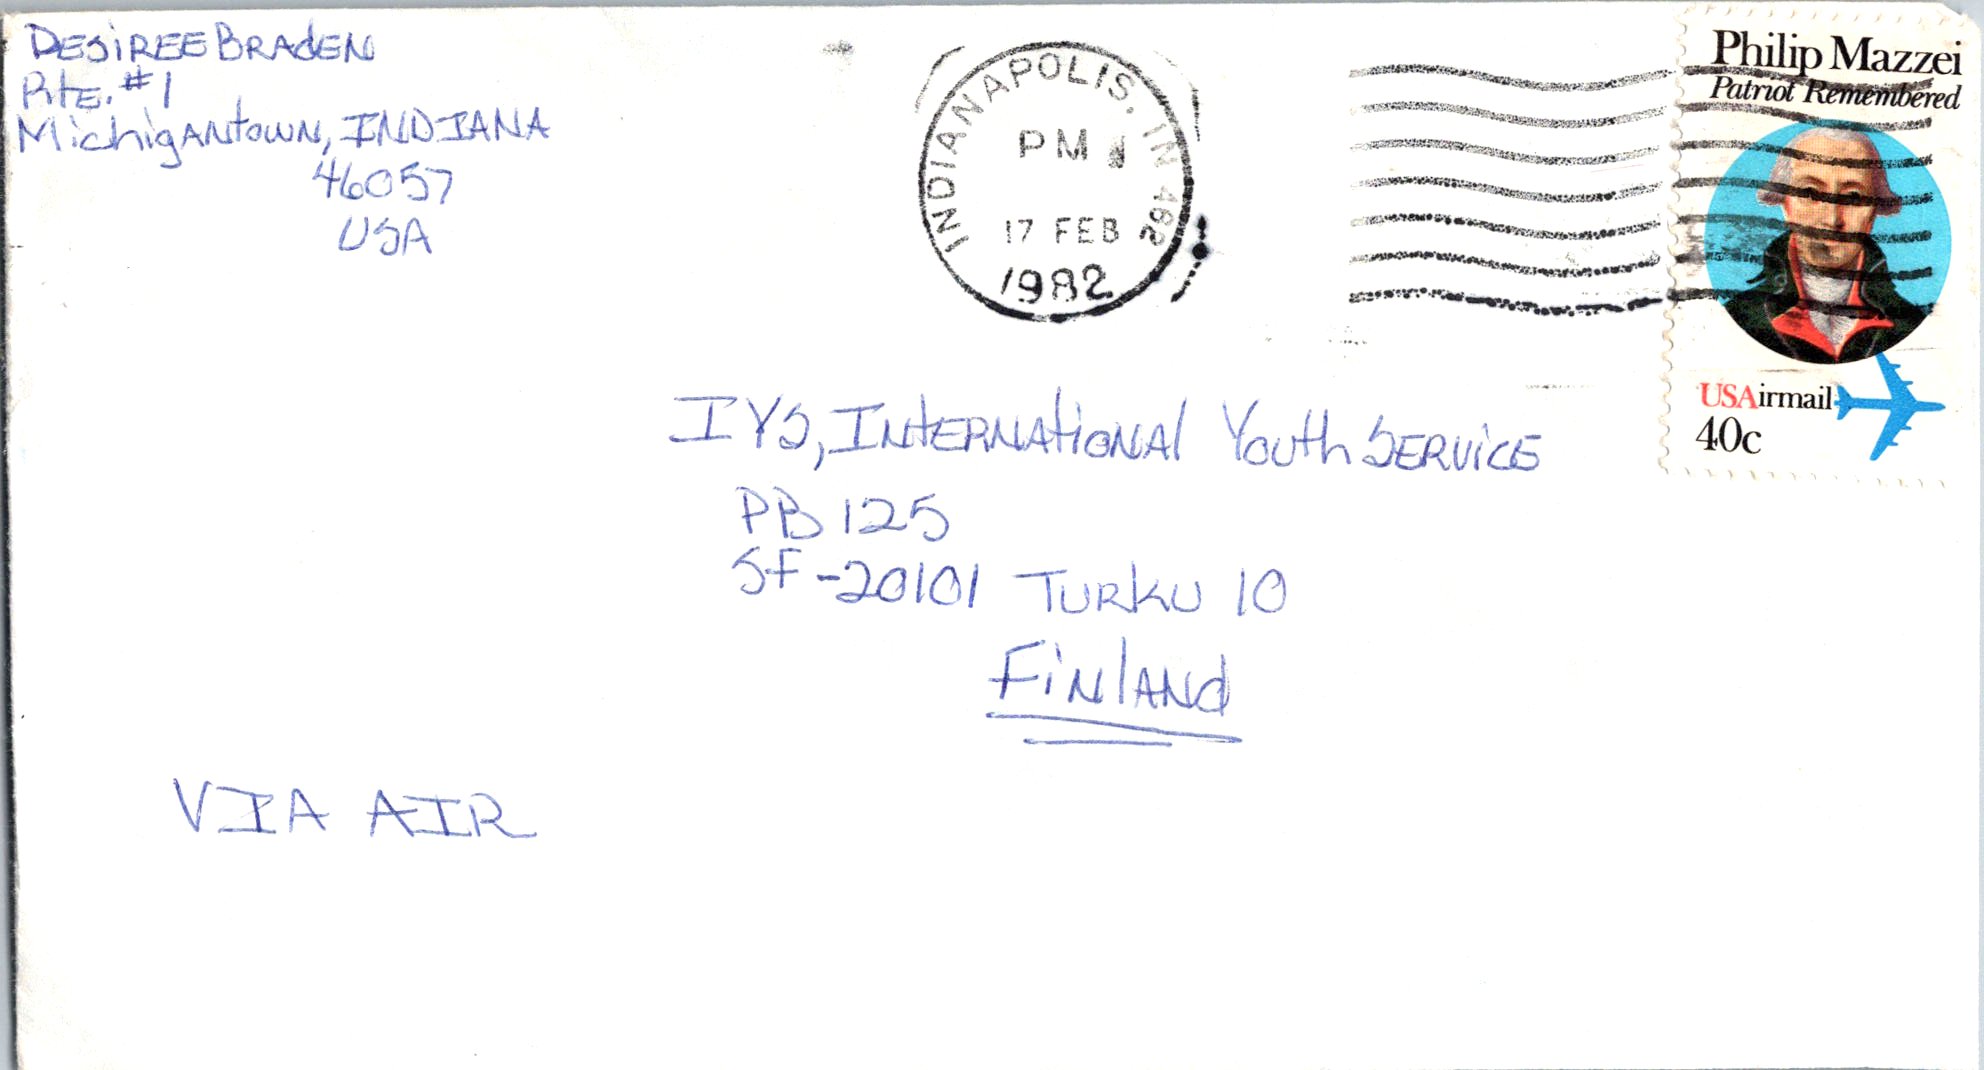 DESiREE BRAdEN
RtE. #1
MichigANtowN, INDIANA
46057
USA
INDIANAPOLIS, IN 462
PM
17 FEB
1982
Philip Mazzei
Patriot Remembered
USAirmail
40c
IYS, INtERNAtiONAl Youth SERViCE
PB 125
SF-20101 TURKU 10
FiNlANd
VIA AIR